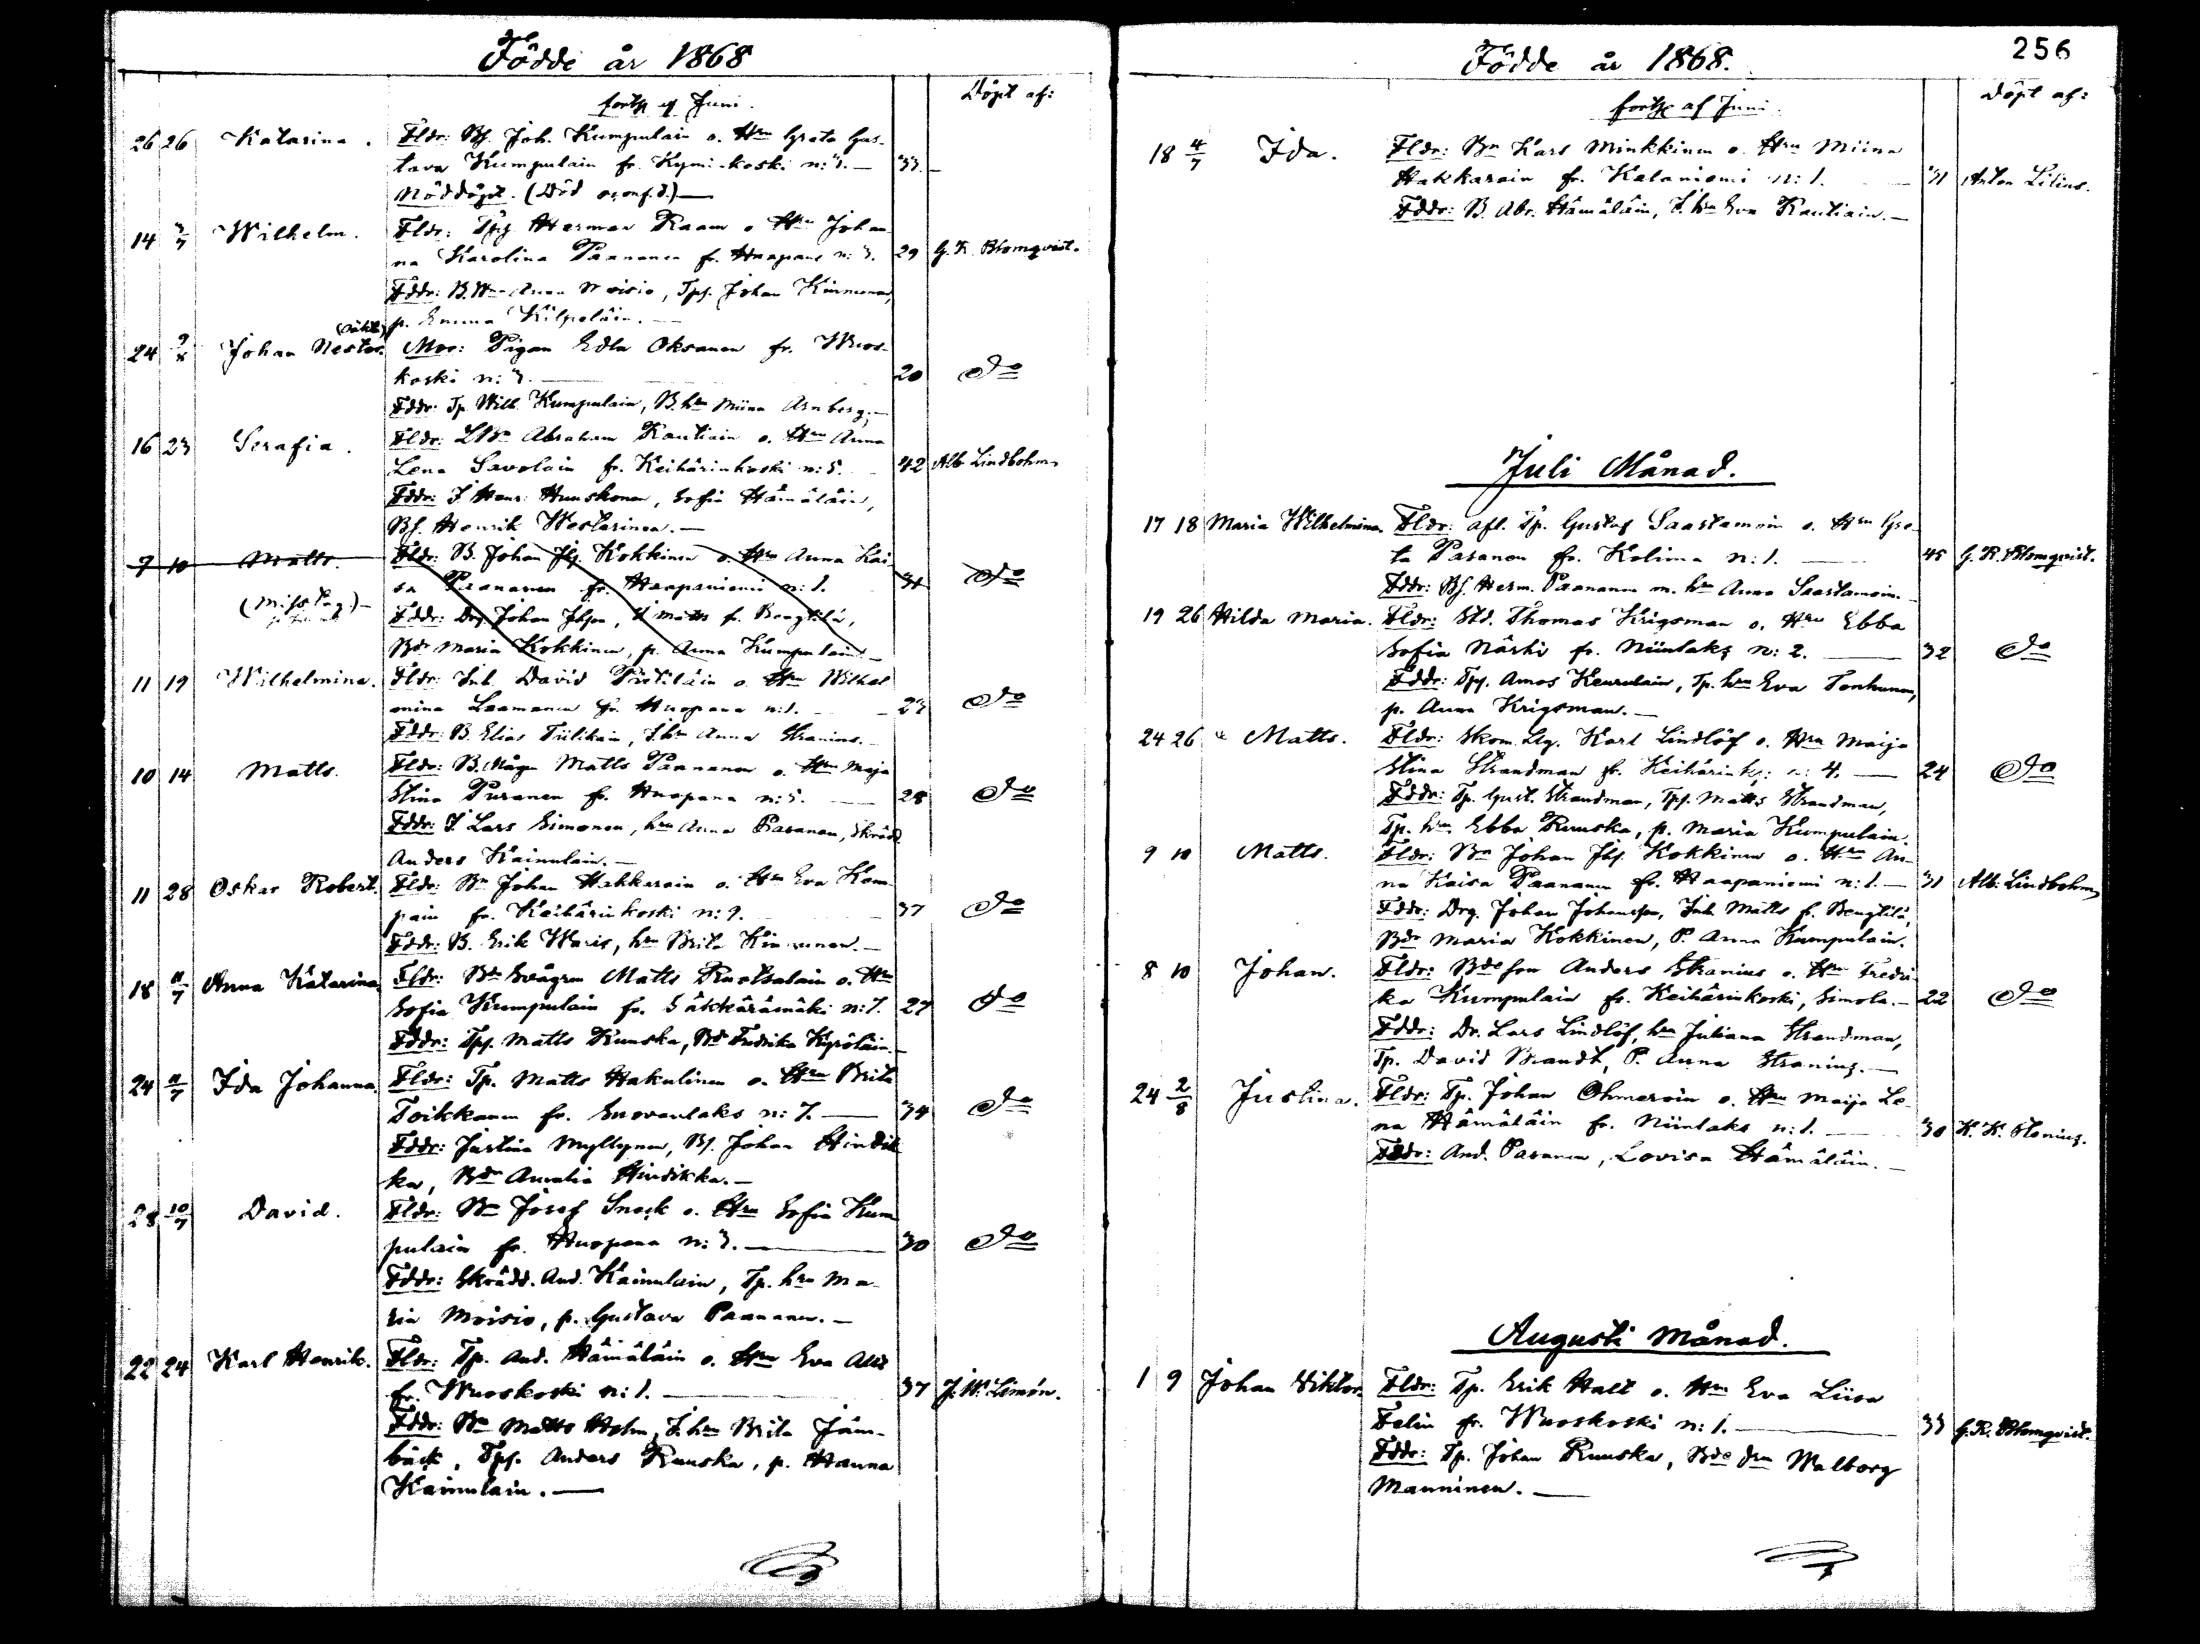 Födde år 1868
fortsg af Juni.
Döpt af:
26 26 Katarina. Fldr: Bs. Joh. Kumpulain o. Hru Greta Gus-
tava Kumpulain fr. Kymönkoski n:3. — 33. —
Nöddöpt. (Död oconf.d.) —
14 5/7 Wilhelm. Fldr: Tps Herman Raam o Hru Johan
na Karolina Paananen fr. Huopana n:3. 29 G. R. Blomqvist.
Fddr: B. Hru Anna Moisio, Tps. Johan Kinnunen,
p. Emma Kilpeläin. —
24 9/8 Johan Nestor. (oäkta) Mor: Pigan Edla Oksanen fr. Wuos-
koski n:3. — 20 do
Fddr: Tp. Wilh. Kumpulain, B. hru Miina Arnberg. —
16 23 Serafia. Fldr: LBn Abraham Rautiain o. Hru Anna
Lena Savolain fr. Keihärinkoski n:5. 42 Alb. Lindbohm
Fddr: I. Henr. Huuskonen, Sofia Hämäläin,
Bs. Henrik Westerinen. —
9 10 Matts. Fldr: B. Johan Jhs. Kokkinen o. Hru Anna Kai
sa Paananen fr. Haapaniemi n:1. 31 do
(Misstag) — Fddr: Drg Johan Jhsson, I. Matts fr. Bengtilä,
Bdr Maria Kokkinen, p. Anna Kumpulain. —
11 19 Wilhelmina. Fldr: Inh. David Pietiläin o. Hru Wilhel
mina Laamanen fr. Huopana n:1. — 23 do
Fddr: B. Elias Tiilikain, I. hru Anna Stranius. —
10 14 Matts. Fldr: B. Mågen Matts Paananen o. Hru Maja
Stina Puranen fr. Huopana n:5. — 28 do
Fddr: I. Lars Simonen, hru Anna Pasanen, Skrädd
Anders Kainulain. —
11 28 Oskar Robert. Fldr: Bn Johan Hakkarain o. Hru Eva Kom-
pain fr. Keihärinkoski n:9. 37 do
Fddr: B. Erik Waris, hru Brita Kinnunen. —
18 11/7 Anna Katarina. Fldr: Bde Svågern Matts Ruotsalain o. Hru
Sofia Kumpulain fr. Säkkärämäki n:7. 27 do
Fddr: Tps. Matts Ruuska, Bdr Fredrika Kyröläin. —
24 11/7 Ida Johanna. Fldr: Tp. Matts Hakulinen o. Hru Brita
Toikkanen fr. Suovanlaks n:7. — 34 do
Fddr: Justina Myllynen, Bs. Johan Hindik
ka, Bdr Amalia Hindikka. —
28 10/7 David. Fldr: Bn Josef Snock o. Hru Sofia Kum
pulain fr. Huopana n:3. — 30 do
Fddr: Skrädd. And. Kainulain, Tp. hru Ma-
ria Moisio, p. Gustava Paananen. —
22 24 Karl Henrik. Fldr: Tp. And. Hämäläin o. Hru Eva
fr. Wuoskoski n:1. — 37 J. W. Limón.
Fddr: Bn Matts Holm, I. hru Brita Jäm-
bäck, Tps. Anders Ruuska, p. Hanna
Kainulain. —
256
Födde år 1868.
fortsg af Juni
Döpt af:
18 4/7 Ida. Fldr: Bn Karl Minkkinen o. Hru Miina
Hakkarain fr. Kalaniemi n:1. — 31 Anton Lilius.
Fddr: B. Abr. Hämäläin, I. hru Eva Rautiain. —
Juli Månad.
17 18 Maria Wilhelmina. Fldr: afl. Tp. Gustaf Saastamoin o. Hru Gre-
ta Pasanen fr. Kolima n:1. — 45 G. R. Blomqvist.
Fddr: Bs. Herm. Paananen m. hru Anna Saastamoin.
19 26 Hilda Maria. Fldr: Std. Thomas Krigsman o. Hru Ebba
Sofia Närhi fr. Niinilaks n:2. — 32 do
Fddr: Tps. Amos Keurulain, Tp. hru Eva Tenhunen,
p. Anna Krigsman. —
24 26 Matts. Fldr: Skom. Llg. Karl Lindlöf o. Hru Maija
Stina Strandman fr. Keihärinks: n:4. — 24 do
Fddr: Tp. Gust. Strandman, Tps. Matts Strandman,
Tp. hru Ebba Ruuska, p. Maria Kumpulain.
9 10 Matts. Fldr: Bn Johan Jhs. Kokkinen o. Hru An-
na Kaisa Paananen fr. Haapaniemi n:1. — 31 Alb. Lindbohm
Fddr: Drg. Johan Johansson, Inh. Matts fr. Bengtilä,
Bdr Maria Kokkinen, P. Anna Kumpulain.
8 10 Johan. Fldr: Bdeson Anders Stranius o. Hru Fredri
ka Kumpulain fr. Keihärinkoski, Simola. — 22 do
Fddr: Dr. Lars Lindlöf, hru Juliana Strandman,
Tp. David Brandt, P. Anna Stranius. —
24 2/8 Justina. Fldr: Tp. Johan Ohmeroin o. Hru Maija Le-
na Hämäläin fr. Niinilaks n:1. — 30 K. K. Stenius.
Fddr: And. Pasanen, Lovisa Hämäläin. —
Augusti Månad.
1 9 Johan Viktor. Fldr: Tp. Erik Halt o. Hru Eva Liisa
Felin fr. Wuoskoski n:1. — 33 G. R. Blomqvist.
Fddr: Tp. Johan Ruuska, Bde dra Walborg
Manninen. —